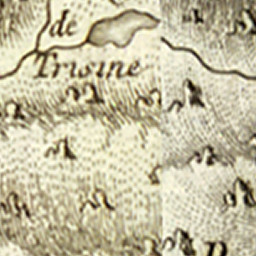 de
Trisine